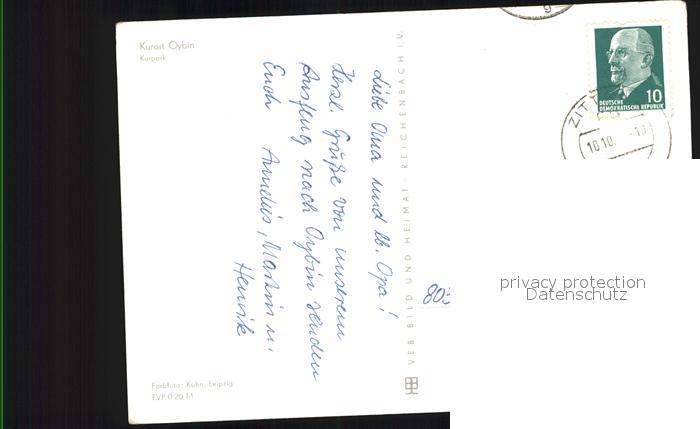 Kurort Oybin
Kurpark
Liebe Oma und lb. Opa!
Herzl. Grüße von unserem
Ausflug nach Oybin senden
Euch Annelies, Martin u.
Henrik
VEB BILD UND HEIMAT · REICHENBACH I.V.
Farbfoto: Kuhn, Leipzig
EVP 0.20 M
10
DEUTSCHE
DEMOKRATISCHE REPUBLIK
ZITT
10.10.
803
privacy protection
Datenschutz